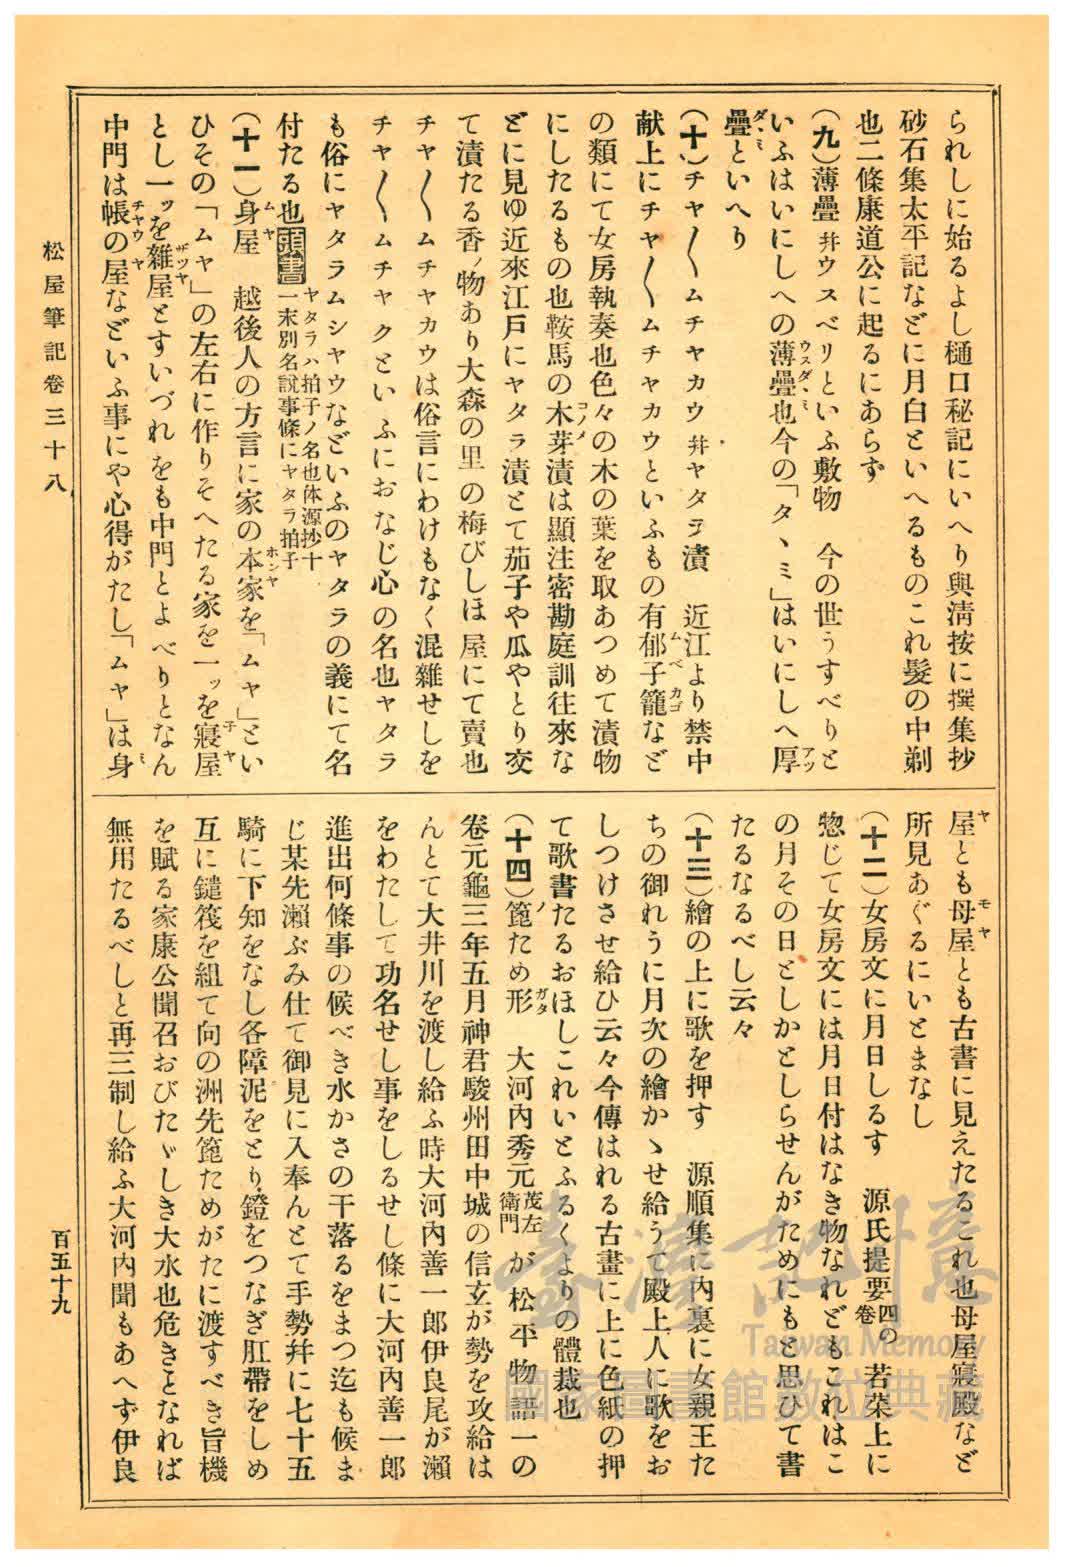 られしに始るよし樋口秘記にいへり與清按に撰集抄
砂石集太平記などに月白といへるものこれ髮の中剃
也二條康道公に起るにあらず
(九)薄疊幷ウスベリといふ敷物　今の世うすべりと
いふはいにしへの薄疊也今の「タヽミ」はいにしへ厚
疊といへり
(十)チヤ〳〵ムチヤカウ幷ヤタラ漬　近江より禁中
献上にチヤ〳〵ムチヤカウといふもの有郁子籠など
の類にて女房執奏也色々の木の葉を取あつめて漬物
にしたるもの也鞍馬の木芽漬は顯注密勘庭訓往來な
どに見ゆ近來江戸にヤタラ漬とて茄子や瓜やとり交
て漬たる香ノ物あり大森の里の梅びしほ屋にて賣也
チヤ〳〵ムチヤカウは俗言にわけもなく混雜せしを
チヤ〳〵ムチヤクといふにおなじ心の名也ヤタラ
も俗にヤタラムシヤウなどいふのヤタラの義にて名
付たる也頭書ヤタラハ拍子ノ名也体源抄十
一末別名説事條にヤタラ拍子
(十一)身屋　越後人の方言に家の本家を「ムヤ」とい
ひその「ムヤ」の左右に作りそへたる家を一ッを寢屋
とし一ッを雜屋とすいづれをも中門とよべりとなん
中門は帳の屋などいふ事にや心得がたし「ムヤ」は身
屋とも母屋とも古書に見えたるこれ也母屋寢殿など
所見あぐるにいとまなし
(十二)女房文に月日しるす　源氏提要四卷の　若菜上に
惣じて女房文には月日付はなき物なれどもこれはこ
の月その日としかとしらせんがためにもと思ひて書
たるなるべし云々
(十三)繪の上に歌を押す　源順集に内裏に女親王た
ちの御れうに月次の繪かゝせ給うて殿上人に歌をお
しつけさせ給ひ云々今傳はれる古畫に上に色紙の押
て歌書たるおほしこれいとふるくよりの體裁也
(十四)箆ため形　大河内秀元茂左衛門が松平物語一の
卷元龜三年五月神君駿州田中城の信玄が勢を攻給は
んとて大井川を渡し給ふ時大河内善一郎伊良尾が瀬
をわたして功名せし事をしるせし條に大河内善一郎
進出何條事の候べき水かさの干落るをまつ迄も候ま
じ某先瀬ぶみ仕て御見に入奉んとて手勢幷に七十五
騎に下知をなし各障泥をとり鐙をつなぎ肛帶をしめ
互に鑓筏を組て向の洲先箆ためがたに渡すべき旨機
を賦る家康公聞召おびたゞしき大水也危きとなれば
無用たるべしと再三制し給ふ大河内聞もあへず伊良
松屋筆記卷三十八
百五十九
臺灣記憶
Taiwan Memory
國家圖書館數位典藏